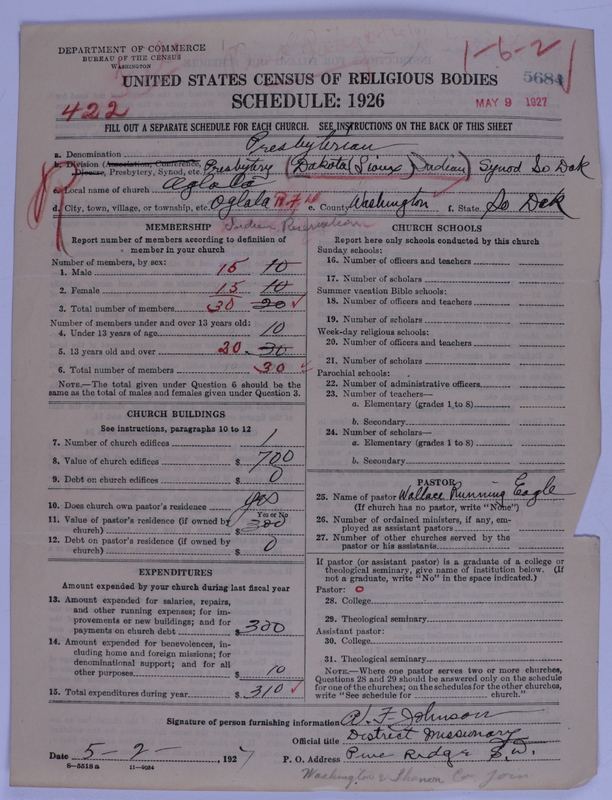 DEPARTMENT OF COMMERCE
BUREAU OF THE CENSUS
WASHINGTON
1-6-2
5684
UNITED STATES CENSUS OF RELIGIOUS BODIES
422
SCHEDULE: 1926
MAY 9 1927
FILL OUT A SEPARATE SCHEDULE FOR EACH CHURCH. SEE INSTRUCTIONS ON THE BACK OF THIS SHEET
a. Denomination Presbyterian
b. Division (Association, Conference, Diocese, Presbytery, Synod, etc. Presbytery (Dakota (Sioux) Indian) Synod So Dak
c. Local name of church
d. City, town, village, or township, etc. Oglala R.F.D e. County Washington f. State So Dak
Indian Reservation
MEMBERSHIP
Report number of members according to definition of
member in your church
Number of members, by sex:
1. Male 15 10
2. Female 15 10
3. Total number of members 30 20
Number of members under and over 13 years old:
4. Under 13 years of age 10
5. 13 years old and over 20 30
6. Total number of members 30
NOTE.—The total given under Question 6 should be
same as the total of males and females given under Question 3.
CHURCH BUILDINGS
See instructions, paragraphs 10 to 12
7. Number of church edifices 1
8. Value of church edifices $ 700
9. Debt on church edifices $ 0
10. Does church own pastor's residence yes
Yes or No
11. Value of pastor's residence (if owned by
church) $ 300
12. Debt on pastor's residence (if owned by
church) $ 0
EXPENDITURES
Amount expended by your church during last fiscal year
13. Amount expended for salaries, repairs,
and other running expenses; for im-
provements or new buildings; and for
payments on church debt $ 300
14. Amount expended for benevolences, in-
cluding home and foreign missions; for
denominational support; and for all
other purposes $ 10
15. Total expenditures during year $ 310
CHURCH SCHOOLS
Report here only schools conducted by this church
Sunday schools:
16. Number of officers and teachers
17. Number of scholars
Summer vacation Bible schools:
18. Number of officers and teachers
19. Number of scholars
Week-day religious schools:
20. Number of officers and teachers
21. Number of scholars
Parochial schools:
22. Number of administrative officers
23. Number of teachers—
a. Elementary (grades 1 to 8)
b. Secondary
24. Number of scholars—
a. Elementary (grades 1 to 8)
b. Secondary
PASTOR
25. Name of pastor Wallace Running Eagle
(If church has no pastor, write "None")
26. Number of ordained ministers, if any, em-
ployed as assistant pastors
27. Number of other churches served by the
pastor or his assistants
If pastor (or assistant pastor) is a graduate of a college or
theological seminary, give name of institution below. (If
not a graduate, write "No" in the space indicated.)
Pastor: O
28. College
29. Theological seminary
Assistant pastor:
30. College
31. Theological seminary
NOTE.—Where one pastor serves two or more churches,
Questions 28 and 29 should be answered only on the schedule
for one of the churches; on the schedules for the other churches,
write "See schedule for church."
Signature of person furnishing information A. F. Johnson
Official title District Missionary
Date 5-2-, 1927 P. O. Address Pine Ridge S.D.
8-5518 a 11-9024
Washington & Shannon Co. join